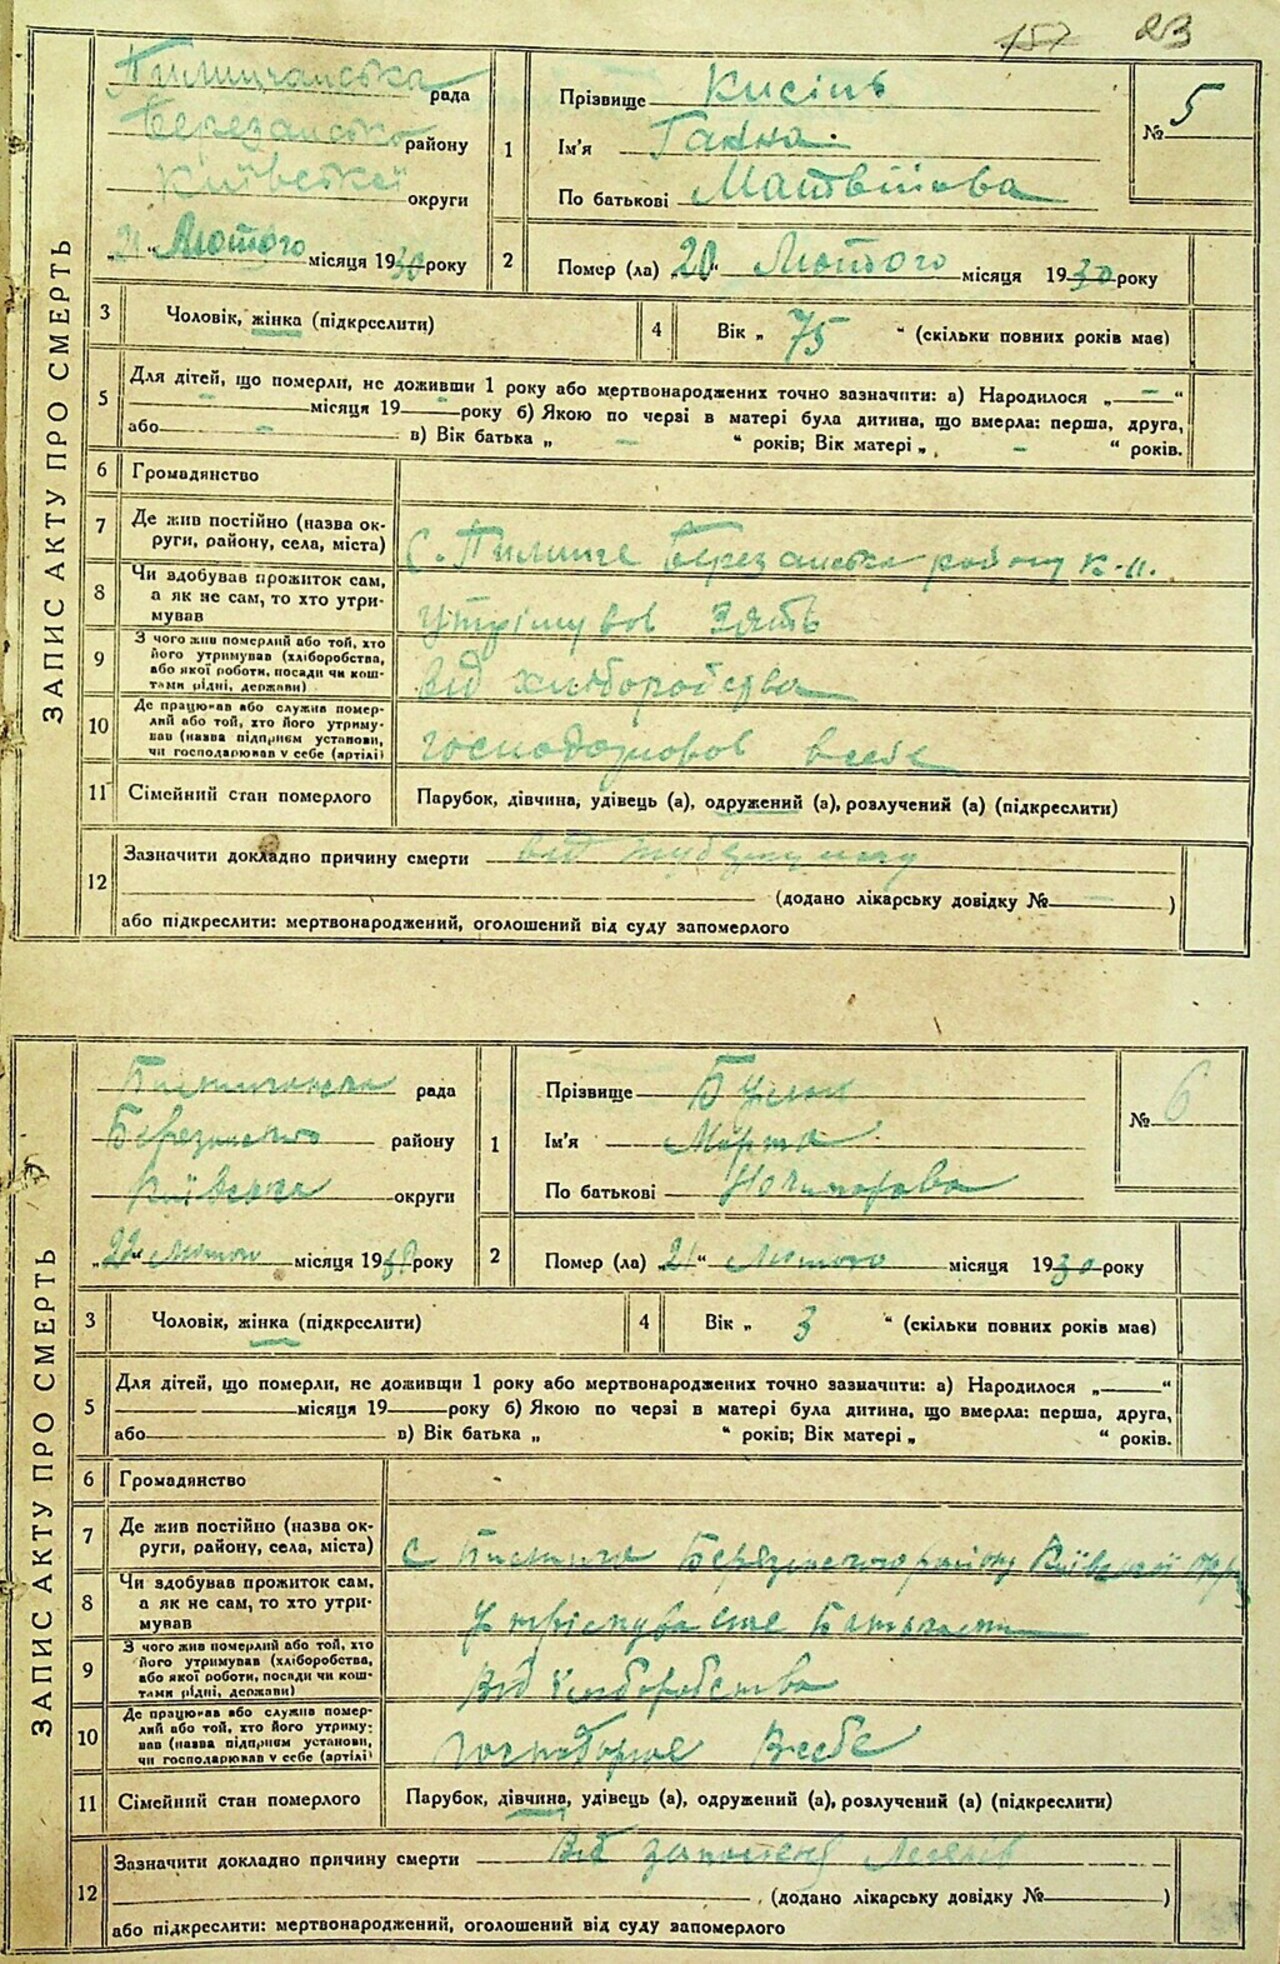 157 23
ЗАПИС АКТУ ПРО СМЕРТЬ
Пилипчанська рада
Березансько району
Київської округи
„21“ Лютого місяця 1930 року
1
Прізвище Кисіль
Ім'я Ганна
По батькові Матвіїова
№ 5
2
Помер (ла) „20“ Лютого місяця 1930 року
3
Чоловік, жінка (підкреслити)
4
Вік „ 75 “ (скільки повних років має)
5
Для дітей, що померли, не доживши 1 року або мертвонароджених точно зазначити: а) Народилося „ — “
— місяця 19 — року б) Якою по черзі в матері була дитина, що вмерла: перша, друга,
або — в) Вік батька „ — “ років; Вік матері „ — “ років.
6
Громадянство
7
Де жив постійно (назва ок-
руги, району, села, міста)
с. Березанська району К.
8
Чи здобував прожиток сам,
а як не сам, то хто утри-
мував
утрімував зять
9
З чого жив померлий або той, хто
його утримував (хліборобства,
або якої роботи, посади чи кош-
тами рідні, держави)
від хліборобства
10
Де працював або служив помер-
лий або той, хто його утриму-
вав (назва підприєм установи,
чи господарював у себе (артілі)
господарював всебе
11
Сімейний стан померлого
Парубок, дівчина, удівець (а), одружений (а), розлучений (а) (підкреслити)
12
Зазначити докладно причину смерти від туберкульозу
(додано лікарську довідку № — )
або підкреслити: мертвонароджений, оголошений від суду запомерлого
ЗАПИС АКТУ ПРО СМЕРТЬ
рада
Березансько району
Київська округи
„22“ Лютого місяця 19 року
1
Прізвище
Ім'я Марта
По батькові
№ 6
2
Помер (ла) „21“ Лютого місяця 1930 року
3
Чоловік, жінка (підкреслити)
4
Вік „ 3 “ (скільки повних років має)
5
Для дітей, що померли, не доживши 1 року або мертвонароджених точно зазначити: а) Народилося „ “
місяця 19 року б) Якою по черзі в матері була дитина, що вмерла: перша, друга,
або в) Вік батька „ “ років; Вік матері „ “ років.
6
Громадянство
7
Де жив постійно (назва ок-
руги, району, села, міста)
с Березанського району Київської округ
8
Чи здобував прожиток сам,
а як не сам, то хто утри-
мував
9
З чого жив померлий або той, хто
його утримував (хліборобства,
або якої роботи, посади чи кош-
тами рідні, держави)
Від хліборобства
10
Де працював або служив помер-
лий або той, хто його утриму-
вав (назва підприєм установи,
чи господарював у себе (артілі)
Всебе
11
Сімейний стан померлого
Парубок, дівчина, удівець (а), одружений (а), розлучений (а) (підкреслити)
12
Зазначити докладно причину смерти Від Легенів
(додано лікарську довідку № )
або підкреслити: мертвонароджений, оголошений від суду запомерлого